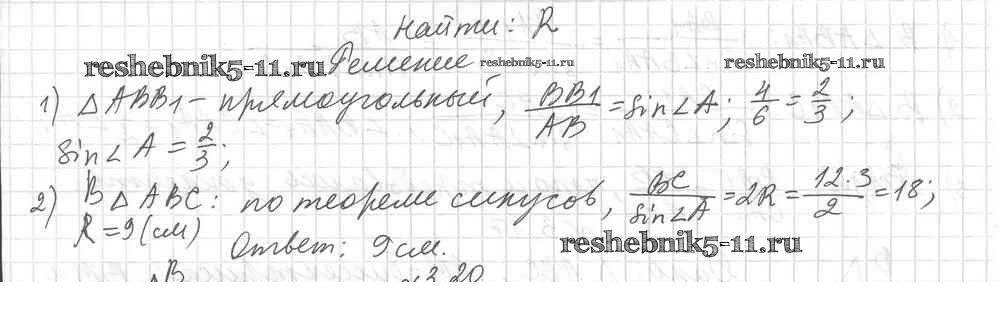 Найти: R
reshebnik5-11.ru Решение reshebnik5-11.ru reshebnik5-11.ru
1) △ABB1 - прямоугольный, BB1/AB = sin∠A; 4/6 = 2/3;
sin∠A = 2/3;
2) В △ABC: по теореме синусов, BC/sin∠A = 2R = 12·3/2 = 18;
R = 9 (см)
Ответ: 9 см.
reshebnik5-11.ru